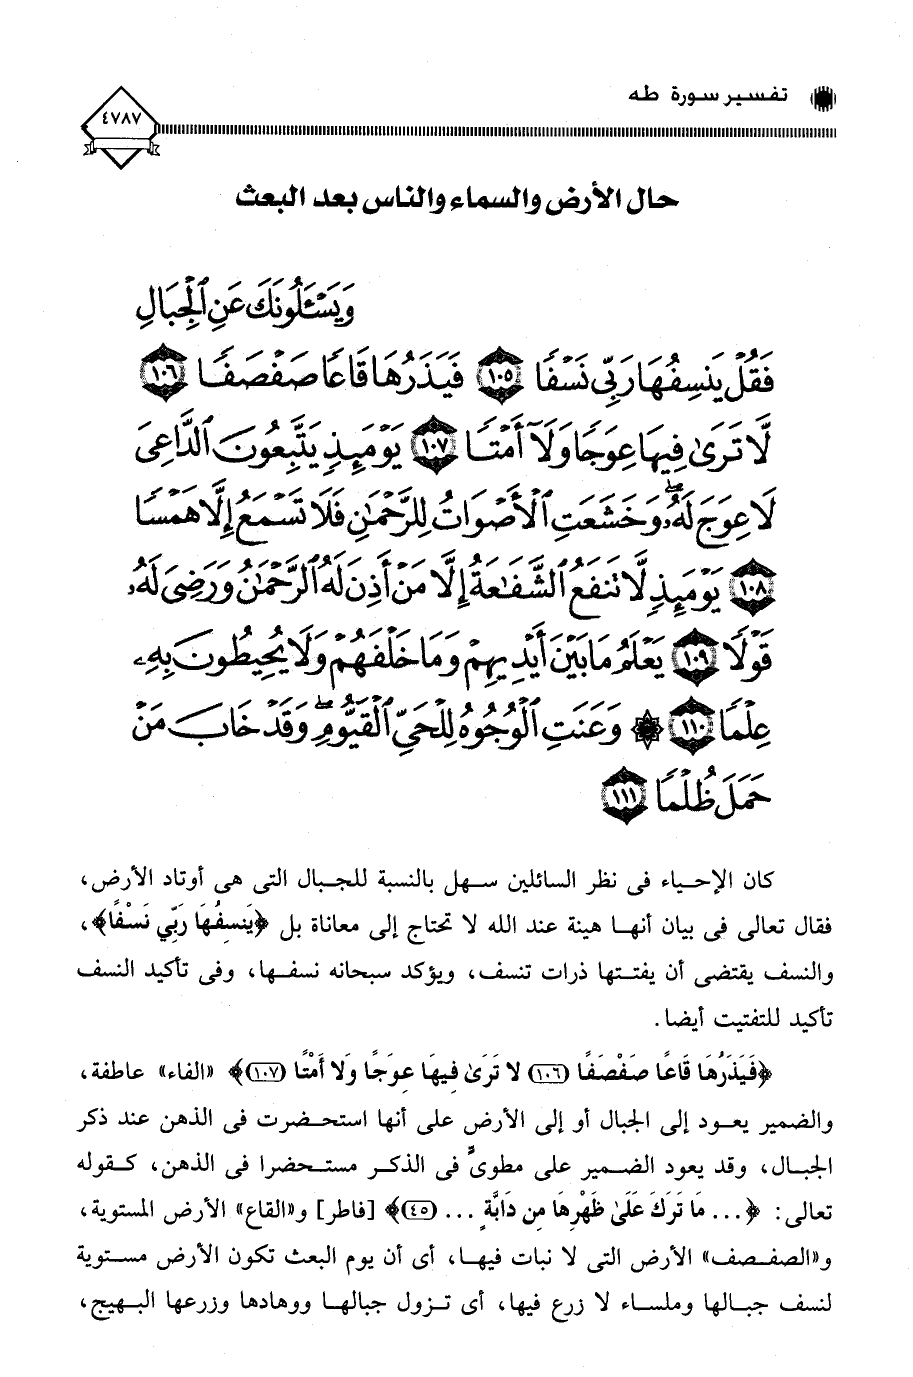 تفسير سورة طه
٤٧٨٧
حال الأرض والسماء والناس بعد البعث
وَيَسْـَٔلُونَكَ عَنِ ٱلْجِبَالِ
فَقُلْ يَنسِفُهَا رَبِّى نَسْفًا ١٠٥ فَيَذَرُهَا قَاعًا صَفْصَفًا ١٠٦
لَّا تَرَىٰ فِيهَا عِوَجًا وَلَآ أَمْتًا ١٠٧ يَوْمَئِذٍ يَتَّبِعُونَ ٱلدَّاعِىَ
لَا عِوَجَ لَهُۥ ۖ وَخَشَعَتِ ٱلْأَصْوَاتُ لِلرَّحْمَٰنِ فَلَا تَسْمَعُ إِلَّا هَمْسًا
١٠٨ يَوْمَئِذٍ لَّا تَنفَعُ ٱلشَّفَٰعَةُ إِلَّا مَنْ أَذِنَ لَهُ ٱلرَّحْمَٰنُ وَرَضِىَ لَهُۥ
قَوْلًا ١٠٩ يَعْلَمُ مَا بَيْنَ أَيْدِيهِمْ وَمَا خَلْفَهُمْ وَلَا يُحِيطُونَ بِهِۦ
عِلْمًا ١١٠ ۞ وَعَنَتِ ٱلْوُجُوهُ لِلْحَىِّ ٱلْقَيُّومِ ۖ وَقَدْ خَابَ مَنْ
حَمَلَ ظُلْمًا ١١١
كان الإحياء فى نظر السائلين سهل بالنسبة للجبال التى هى أوتاد الأرض،
فقال تعالى فى بيان أنها هينة عند الله لا تحتاج إلى معاناة بل ﴿يَنسِفُهَا رَبِّي نَسْفًا﴾،
والنسف يقتضى أن يفتتها ذرات تنسف، ويؤكد سبحانه نسفها، وفى تأكيد النسف
تأكيد للتفتيت أيضا.
﴿فَيَذَرُهَا قَاعًا صَفْصَفًا (١٠٦) لا تَرَىٰ فِيهَا عِوَجًا وَلا أَمْتًا (١٠٧)﴾ «الفاء» عاطفة،
والضمير يعود إلى الجبال أو إلى الأرض على أنها استحضرت فى الذهن عند ذكر
الجبال، وقد يعود الضمير على مطوىٍّ فى الذكر مستحضرا فى الذهن، كقوله
تعالى: ﴿... مَا تَرَكَ عَلَىٰ ظَهْرِهَا مِن دَابَّةٍ ... (٤٥)﴾ [فاطر] و«القاع» الأرض المستوية،
و«الصفصف» الأرض التى لا نبات فيها، أى أن يوم البعث تكون الأرض مستوية
لنسف جبالها وملساء لا زرع فيها، أى تزول جبالها ووهادها وزرعها البهيج،